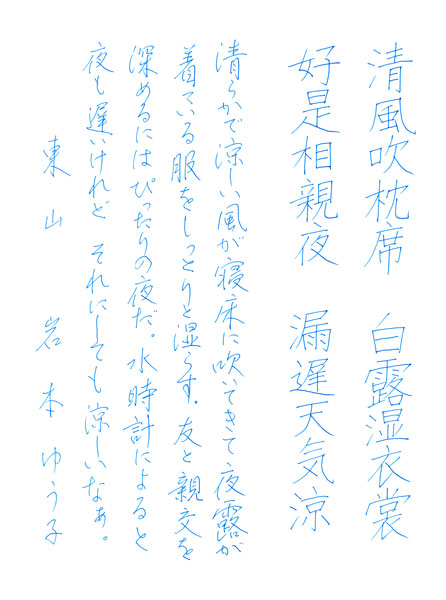 清風吹枕席 白露湿衣裳
好是相親夜 漏遅天気涼
清らかで涼しい風が寝床に吹いてきて夜露が
着ている服をしっとりと湿らす。友と親交を
深めるにはぴったりの夜だ。水時計によると
夜も遅いけれど それにしても涼しいなぁ。
東山 岩本ゆう子